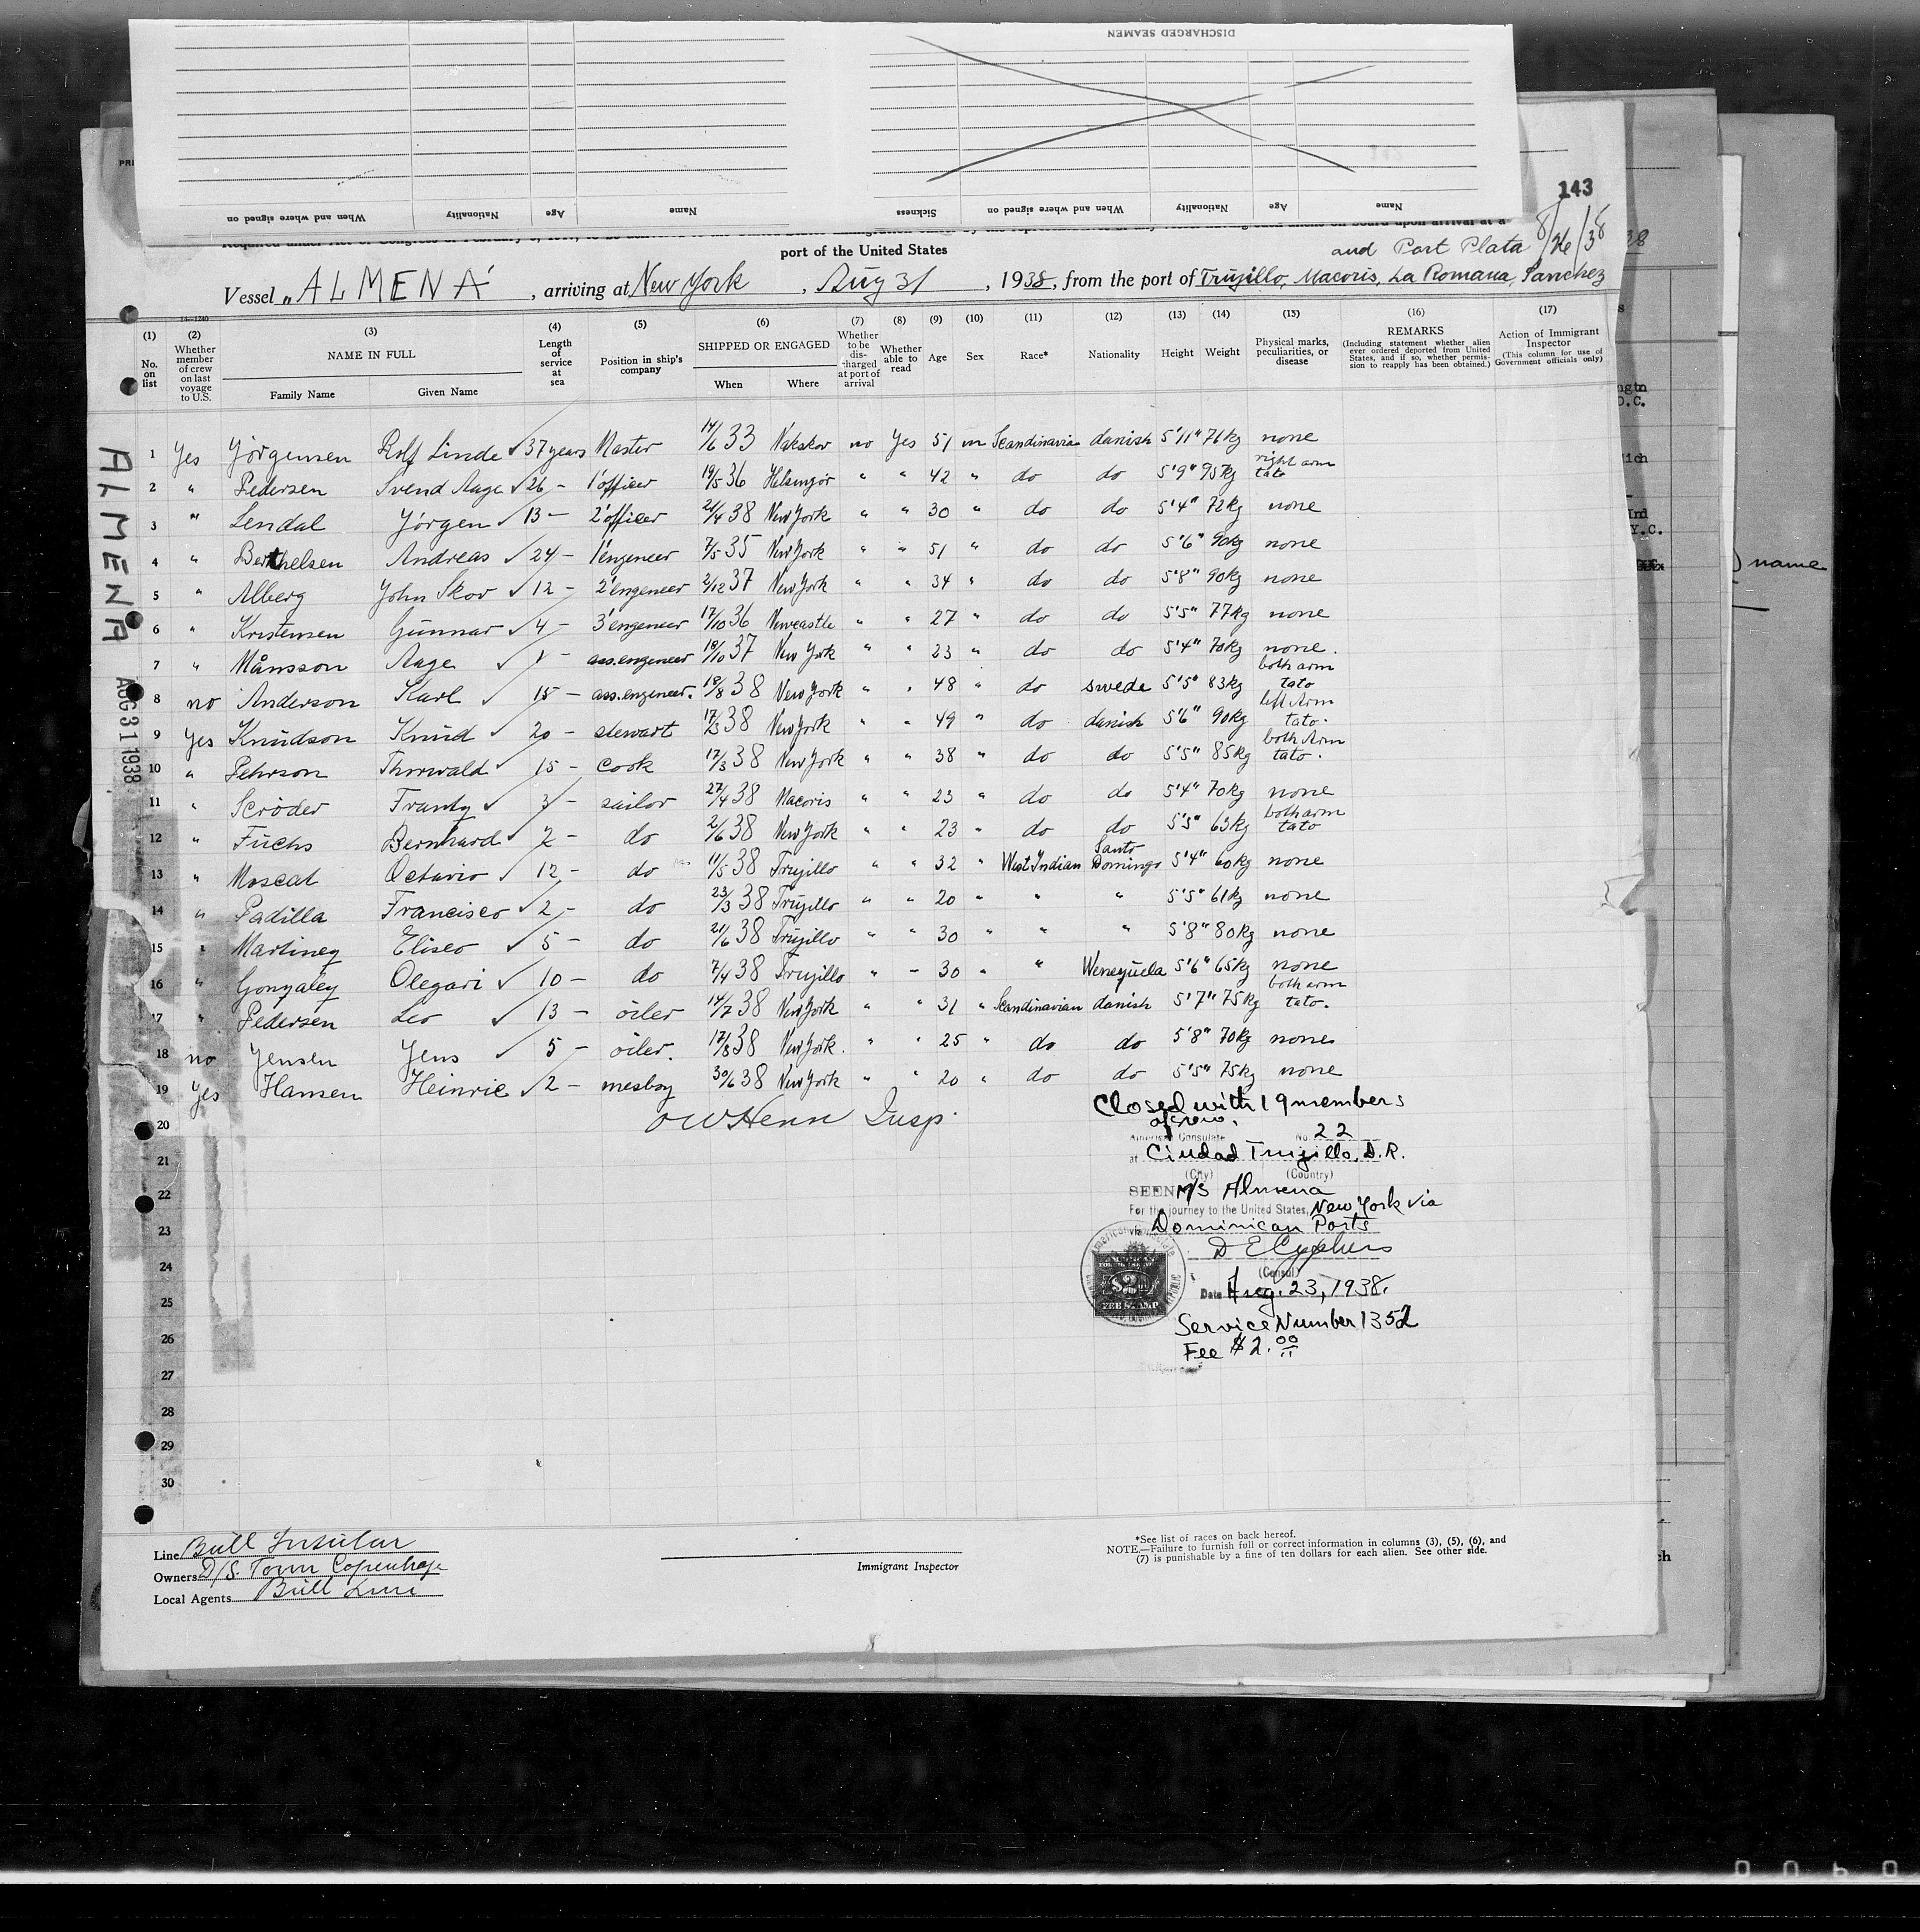 DISCHARGED SEAMEN
When and where signed on Nationality Age Name Sickness When and where signed on Nationality Age Name
143
port of the United States
and Port Plata 8/26/38
Vessel "ALMENA", arriving at New York, Aug 31, 1938, from the port of Trujillo, Macoris, La Romana, Sanchez
(1) (2) (3) (4) (5) (6) (7) (8) (9) (10) (11) (12) (13) (14) (15) (16) (17)
No. on list
Whether member of crew on last voyage to U.S.
NAME IN FULL
Family Name Given Name
Length of service at sea
Position in ship's company
SHIPPED OR ENGAGED
When Where
Whether to be discharged at port of arrival
Whether able to read
Age Sex Race* Nationality Height Weight
Physical marks, peculiarities, or disease
REMARKS
(Including statement whether alien ever ordered deported from United States, and if so, whether permission to reapply has been obtained.)
Action of Immigrant Inspector
(This column for use of Government officials only)
ALMENA
AUG 31 1938
1 Yes Jörgensen Rolf Linde 37 years Master 14/6 33 Nakskov no Yes 51 m Scandinavia danish 5'11" 76kg none
2 " Pedersen Svend Aage 26 - 1'officer 19/5 36 Helsingör " " 42 " do do 5'9" 95kg right arm tato
3 " Lendal Jörgen 13 - 2'officer 21/4 38 New York " " 30 " do do 5'4" 72kg none
4 " Berthelsen Andreas 24 - 1'engeneer 7/5 35 New York " " 51 " do do 5'6" 90kg none
5 " Alberg John Skov 12 - 2'engeneer 2/12 37 New York " " 34 " do do 5'8" 90kg none
6 " Kristensen Gunnar 4 - 3'engeneer 17/10 36 Newcastle " " 27 " do do 5'5" 77kg none
7 " Månsson Aage 1 - ass.engeneer 18/10 37 New York " " 23 " do do 5'4" 70kg none.
8 no Anderson Karl 15 - ass.engeneer. 18/8 38 New York " " 48 " do swede 5'5" 83kg both arm tato
9 Yes Knudson Knud 20 - stewart 17/3 38 New York " " 49 " do danish 5'6" 90kg left Arm tato.
10 " Pehrson Thorwald 15 - cook 17/3 38 New York " " 38 " do do 5'5" 85kg both Arm tato.
11 " Scröder Frantz 3 - sailor 27/4 38 Macoris " " 23 " do do 5'4" 70kg none
12 " Fuchs Bernhard 2 - do 2/6 38 New York " " 23 " do do 5'5" 63kg both arm tato
13 " Moscat Octavio 12 - do 11/5 38 Trujillo " " 32 " West Indian Santo Domingo 5'4" 60kg none
14 " Padilla Francisco 2 - do 23/3 38 Trujillo " " 20 " " " 5'5" 61kg none
15 " Martinez Eliseo 5 - do 21/6 38 Trujillo " " 30 " " " 5'8" 80kg none
16 " Gonzalez Olegari 10 - do 7/4 38 Trujillo " - 30 " " Wenezuela 5'6" 65kg none
17 " Pedersen Leo 13 - oiler 14/7 38 New York " " 31 " Scandinavian danish 5'7" 75kg both arm tato.
18 no Jensen Jens 5 - oiler. 17/8 38 New York. " " 25 " do do 5'8" 70kg none
19 Yes Hansen Heinric 2 - mesboy 30/6 38 New York " " 20 " do do 5'5" 75kg none
20 O W Henn Insp.
21
22
23
24
25
26
27
28
29
30
Closed with 19 members
of crew.
American Consulate No. 22
at Ciudad Trujillo, D.R.
(City) (Country)
SEEN M/S Almena
For the journey to the United States, New York via
via Dominican Ports
D E Cyphers
(Consul)
Date Aug. 23, 1938.
Service Number 1352
Fee $2.00
AMERICAN
$2
FEE STAMP
Line Bull Insular
Owners D/S. Torm Copenhage
Local Agents Bull Line
Immigrant Inspector
*See list of races on back hereof.
NOTE.—Failure to furnish full or correct information in columns (3), (5), (6), and
(7) is punishable by a fine of ten dollars for each alien. See other side.
name